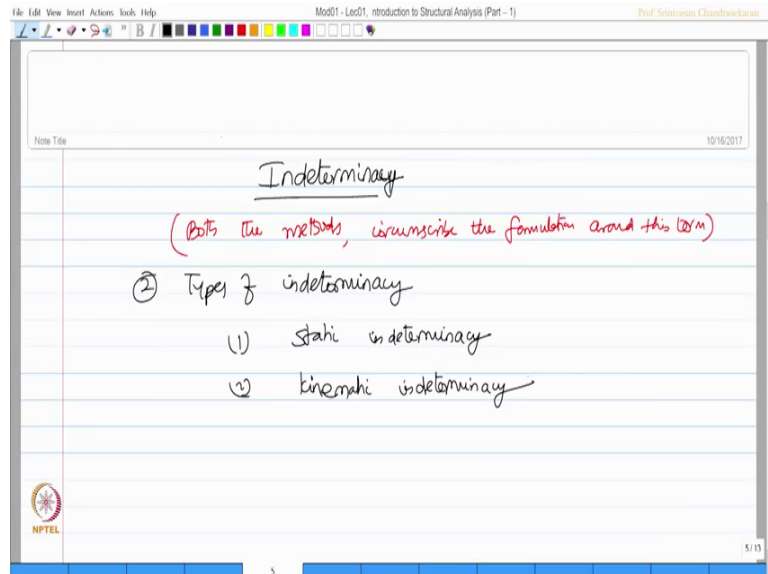 File Edit View Insert Actions Tools Help
Mod01 - Lec01, ntroduction to Structural Analysis (Part – 1)
Prof Srinivasan Chandrasekaran
B I
Note Title
10/16/2017
Indeterminacy
(Both the methods, circumscribe the formulation around this term)
② Types of indeterminacy
(1) static indeterminacy
(2) kinematic indeterminacy
NPTEL
5/13
5